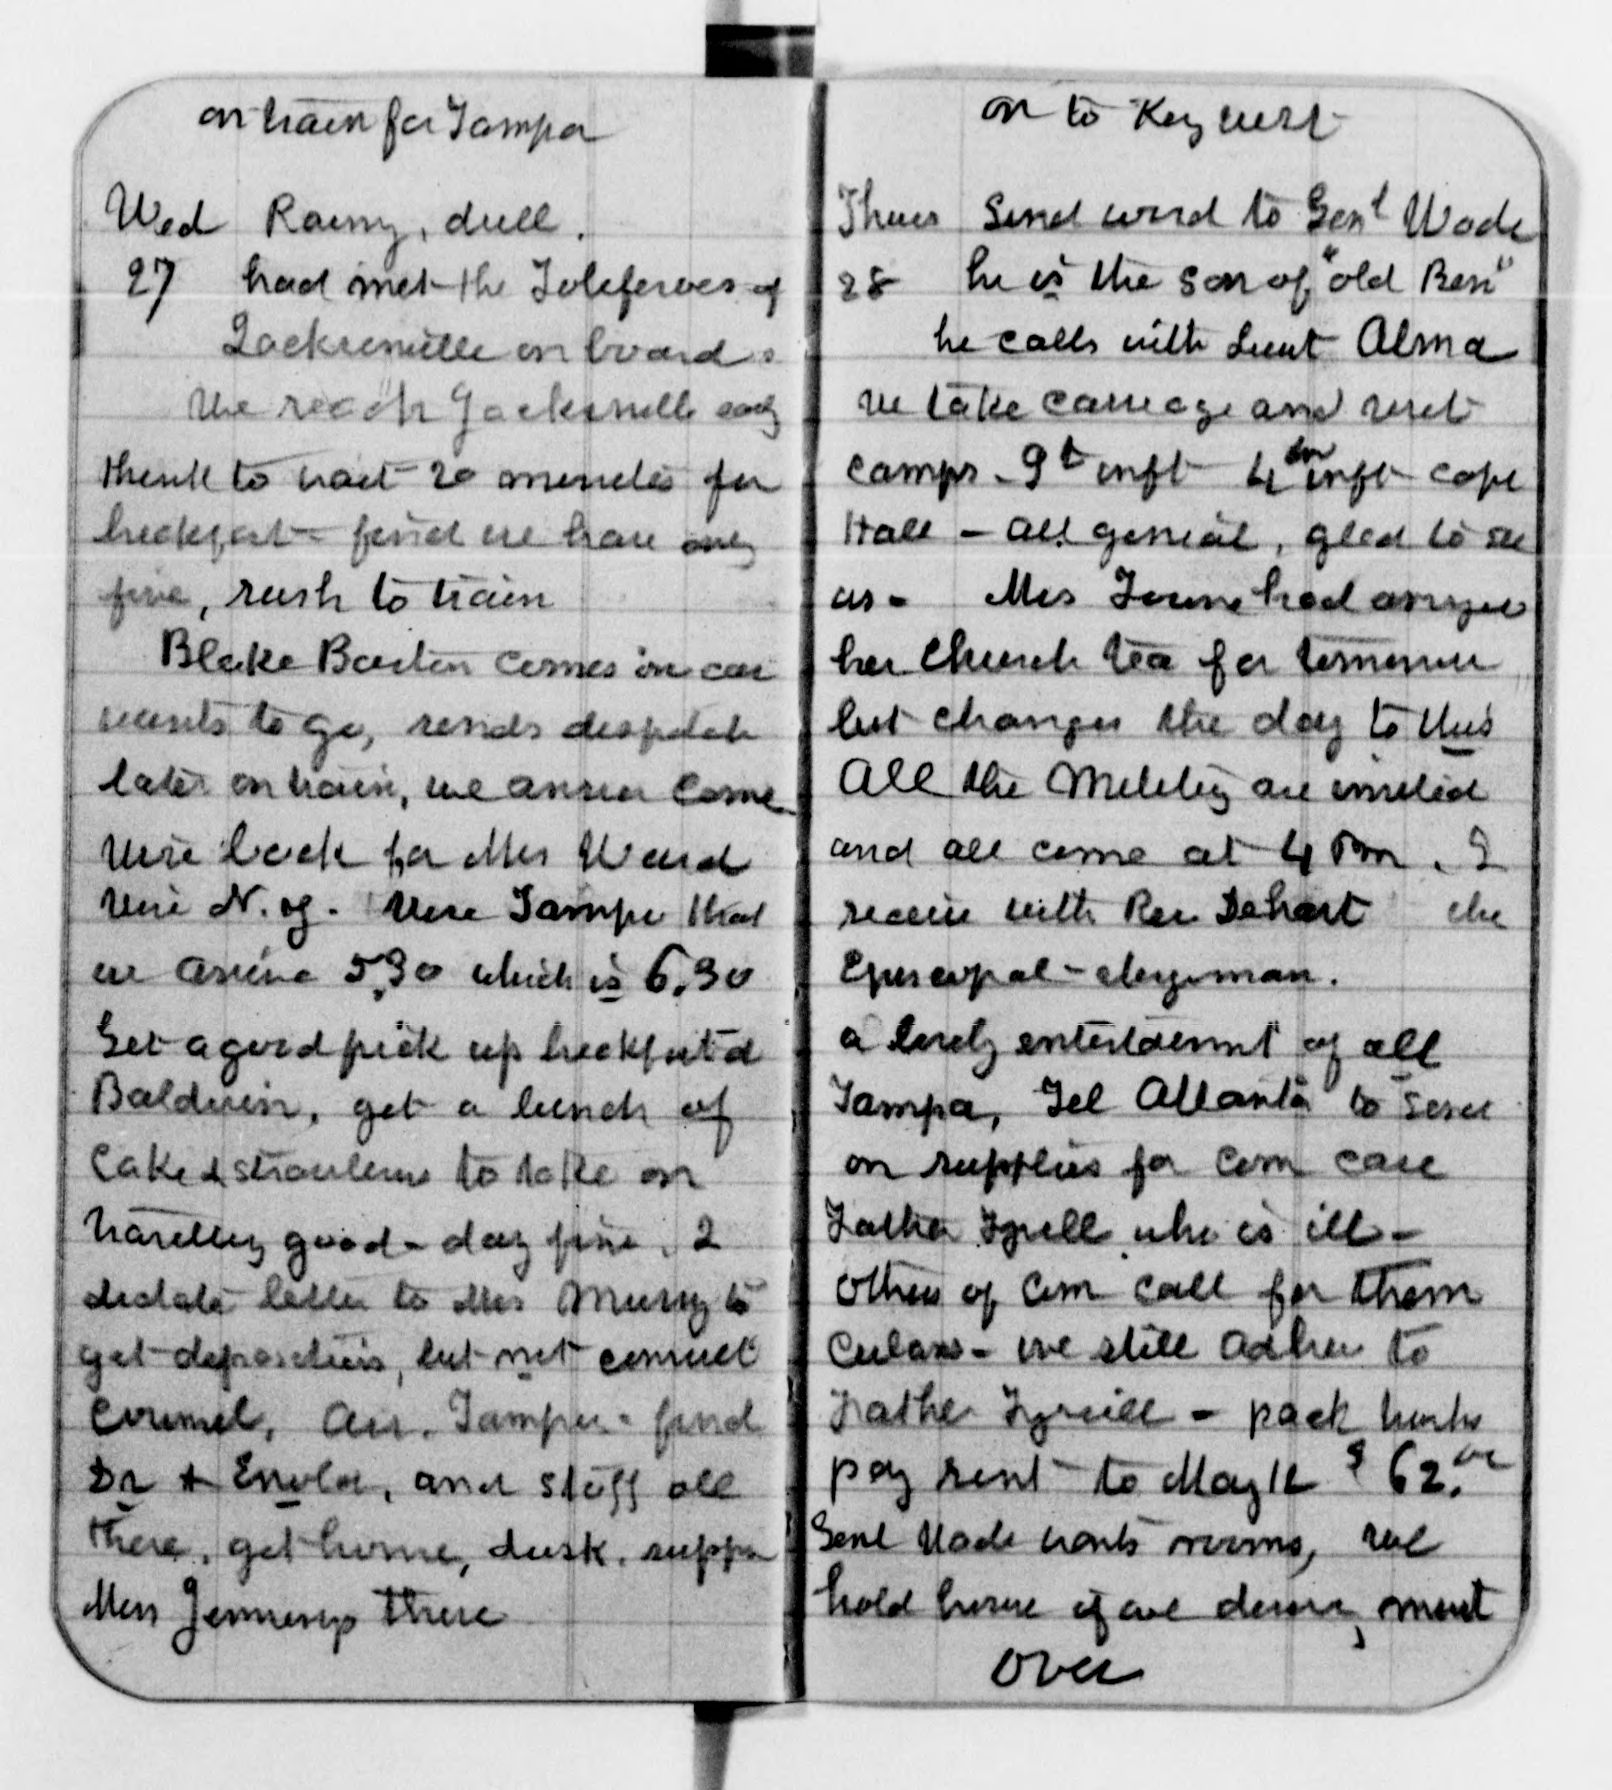 on train for Tampa
Wed Rainy, dull.
27 had met the Toleferoes of
Jacksonville on board.
We reach Jacksonville early
think to wait 20 minutes for
breakfast - find we have only
five, rush to train
Blake Barton comes in car
wants to go, sends despatch
later on train, we answer Come
Wire back for Mrs Ward
Wire N. og. Wire Tampa that
we arrive 5.30 which is 6.30
Get a good pick up breakfast at
Baldwin, get a lunch of
Cake & to take on
travelling good - day fine. I
dictate letter to Mrs Mussy to
get depositions, but not consult
Counsel, arr. Tampa - find
Dr & Enola, and staff all
there, get home, dusk. supper
Miss Jennings there
on to Key west
Thurs Send word to Genl Wade
28 he is the son of "old Ben"
he calls with Lieut Alma
we take carriage and visit
camps - 9th inft 4th inft Capt
Hall - all genial, glad to see
us - Mrs had arranged
her Church tea for tomorrow
but changes the day to this
All the Military are invited
and all come at 4 Pm. I
receive with Rev Dehart the
Episcopal - clergyman.
a lovely entertainment of all
Tampa, Tel Atlanta to send
on supplies for Com care
Father Tyrill who is ill -
Others of Com call for them
Cubans - we still adhere to
Father Tyrill - pack trunks
pay rent to May 12 $ 62.00
Genl Wade wants rooms, we
hold house if we desire, must
over